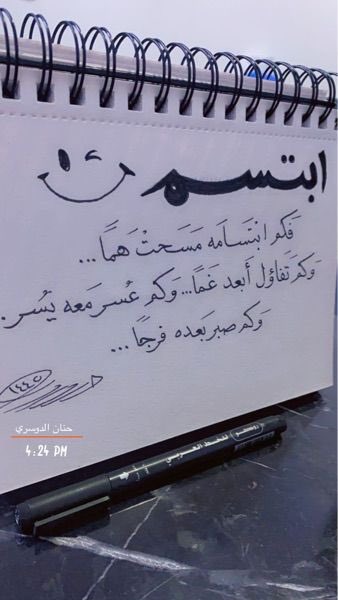 ابتسم
فَكم ابْتسَامَه مَسَحتْ هَمًا...
وَكم تَفاؤل أبعد غمًا... وَكم عُسر مَعه يُسر.
وَكم صبر بَعده فرجًا...
١٤٤٥
حنان الدوسري
4:24 PM
للخط العربي